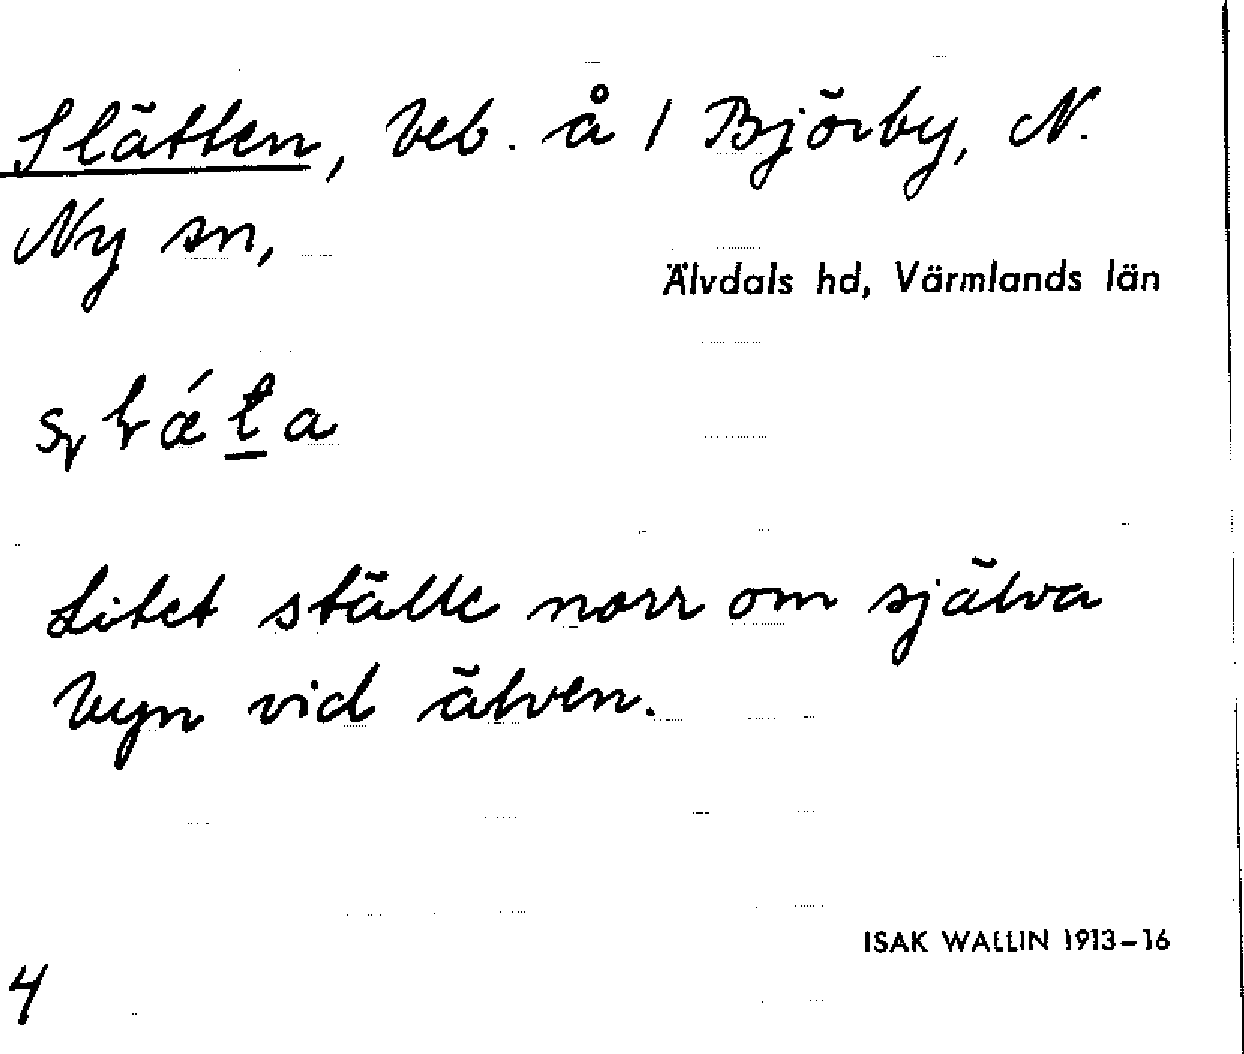 Slätten, beb. å 1 Björby, N.
Ny sn,
Älvdals hd, Värmlands län
Litet ställe norr om själva
byn vid älven.
ISAK WALLIN 1913–16
4